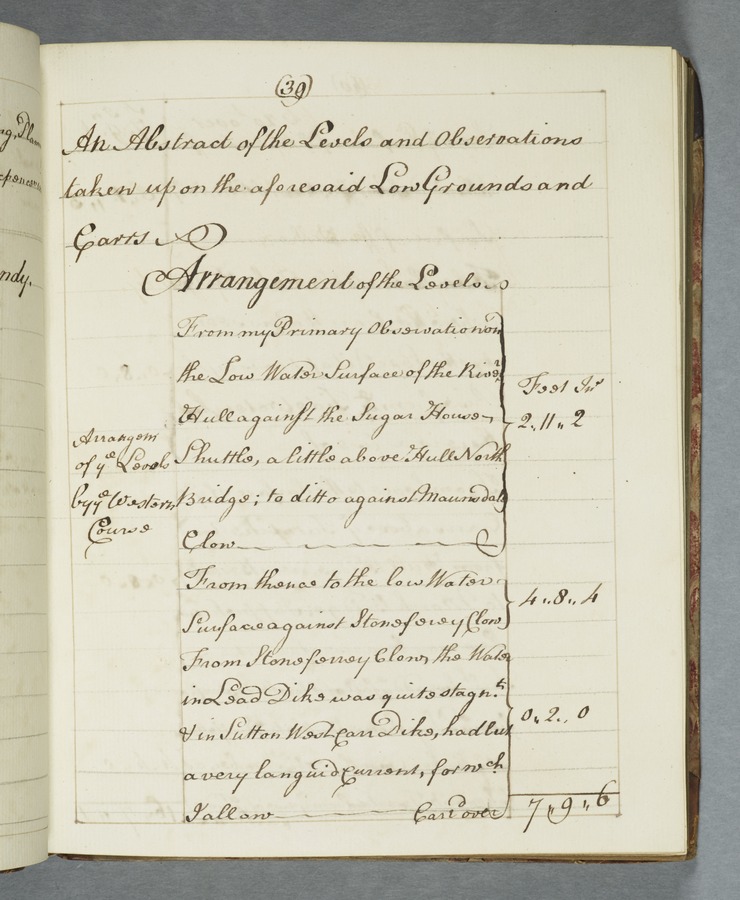 (39)
An Abstract of the Levels and Observations
taken upon the aforesaid Low Grounds and
Carrs
Arrangement of the Levels
From my Primary Observation on
the Low Water Surface of the River
Hull against the Sugar House
Shuttle, a little above Hull North
Bridge; to ditto against Maunsdale
Clow
Feet In^s
2,, 11,, 2
Arrangem^t
of y^e Levels
by y^e Western
Course
From thence to the low Water
Surface against Stoneferey Clow
4,, 8,, 4
From Stoneferrey Clow, the Water
in Lead Dike was quite stagn^t.
& in Sutton West Carr Dike, had but
a very languid Current, for w^ch
I allow
0,, 2,, 0
Car^d over
7,, 9,, 6
ndy.